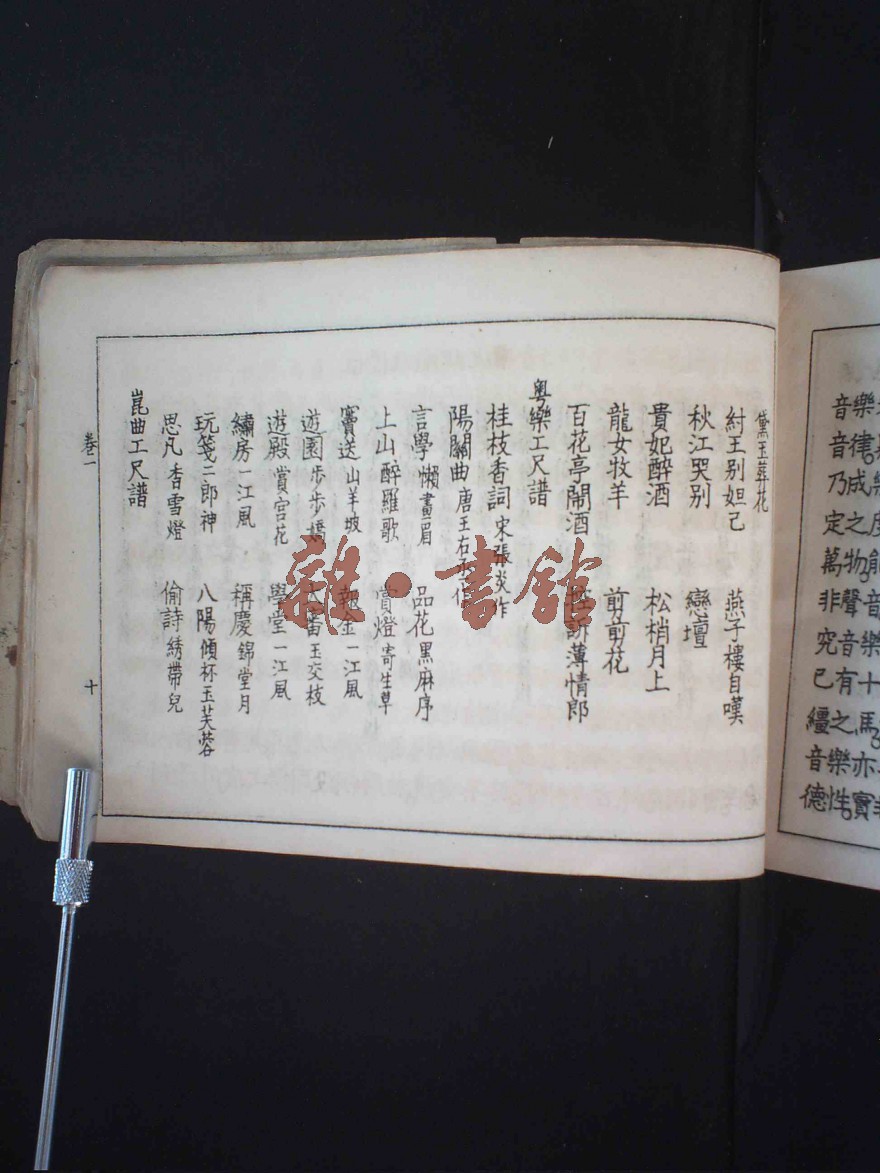 樂度能音樂十馬亦實
樂律成之物聲音有之樂性
音音乃定萬非究已繮音德
黛玉葬花
紂王別妲己 燕子樓自嘆
秋江哭別 戀壇
貴妃醉酒 松梢月上
龍女牧羊 前前花
百花亭鬧酒 訴薄情郎
粵樂工尺譜
桂枝香詞 宋張炎作
陽關曲 唐王右丞作
言學 懶畫眉 品花 黑麻序
上山 醉羅歌 賞燈 寄生草
竇送 山羊坡 報金 一江風
遊園 步步嬌 玉交枝
遊殿 賞宮花 學堂 一江風
繡房 一江風 稱慶 錦堂月
玩箋 二郎神 八陽 傾杯玉芙蓉
思凡 香雪燈 偷詩 綉帶兒
崑曲工尺譜
卷一 十
雜·書館